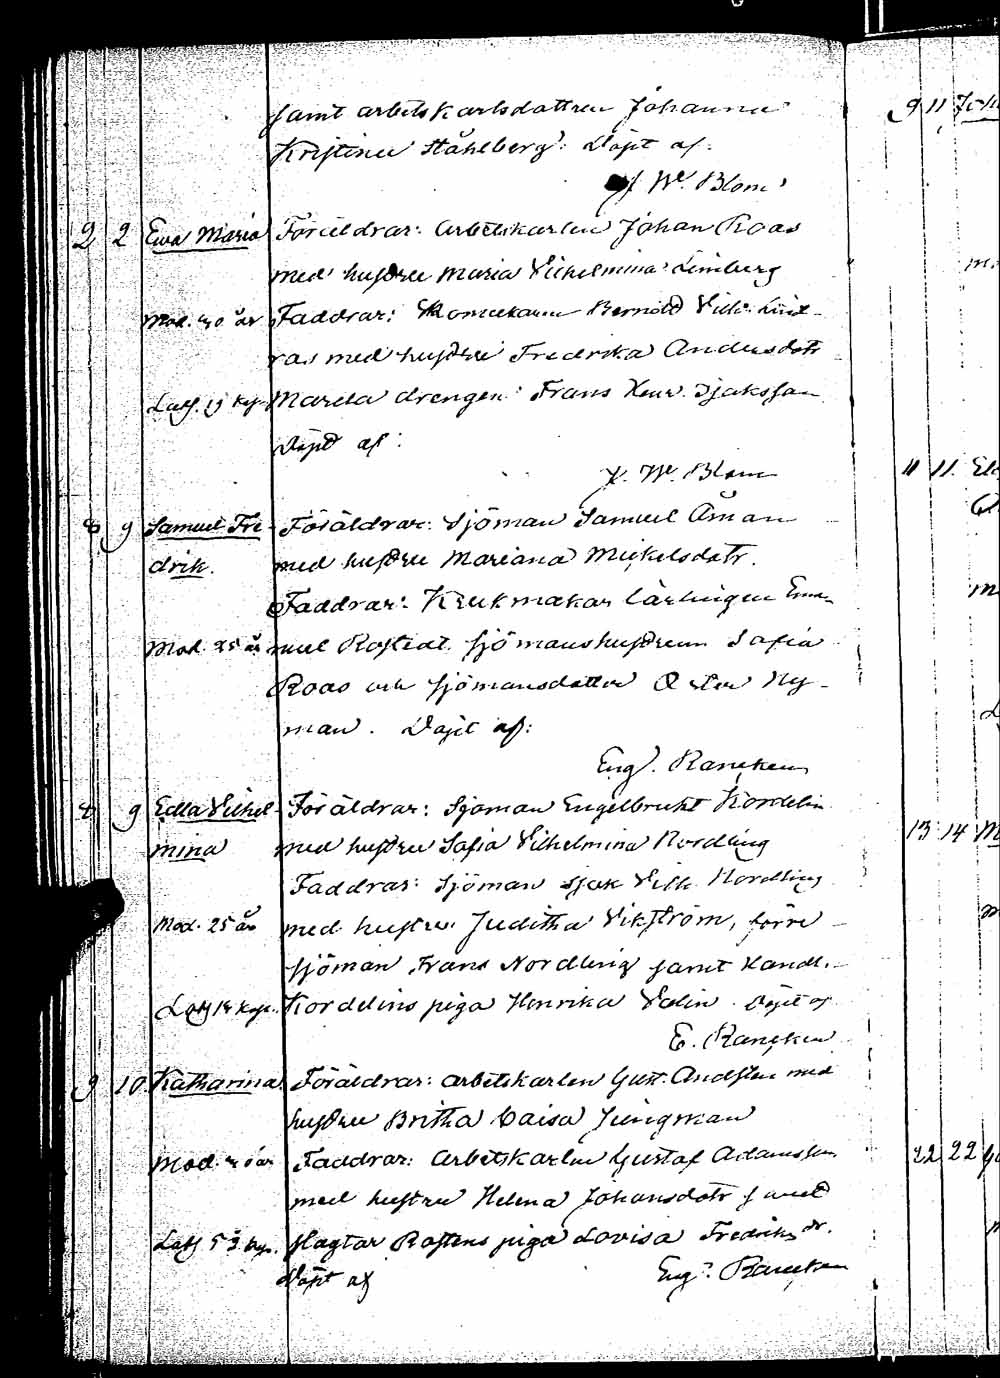 samt arbetskarlsdottren Johanna
Kristina Ståhlberg. Döpt af:
J. Wr. Blom
2 2 Ewa Maria Föräldrar: Arbetskarlen Johan Roas
med hustru Maria Vilhelmina Limberg
Mod. 40 år Faddrar: Bernold Vilh. Lind-
ros med hustru Fredrika Andersdotr
Mareta drengen Frans Henr. Isaksson
Döpt af:
J. Wr. Blom
8 9 Samuel Fre- Föräldrar: Sjöman Samuel Åman
drik. med hustru Mariana Mickelsdotr.
Faddrar: Krukmakar lärlingen Ema-
Mod. 25 år nuel Rostedt. sjömanshustrun Sofia
Roos och sjömansdotter Ny-
man. Döpt af:
Eng. Rancken
8 9 Edla Vilhel- Föräldrar: Sjöman Engelbrekt Kordelin
mina med hustru Sofia Vilhelmina Nordling
Faddrar: Sjöman Isak Vilh. Nordling
Mod. 25 år med hustru Juditha Vikström, förre
sjöman Frans Nordling samt Handl.
Kordelins piga Henrika Valin. Döpt af
E. Rancken
9 10. Katharina. Föräldrar: arbetskarlen Gust. Andsten med
hustru Britha Caisa Jungman
Mod. Faddrar: Arbetskarlen Gustaf Adamsson
med hustru Helena Johansdotr samt
slagtar Rostens piga Lovisa Fredriks dr.
Döpt af Eng. Rancken
9 11
11 11.
13 14
22 22